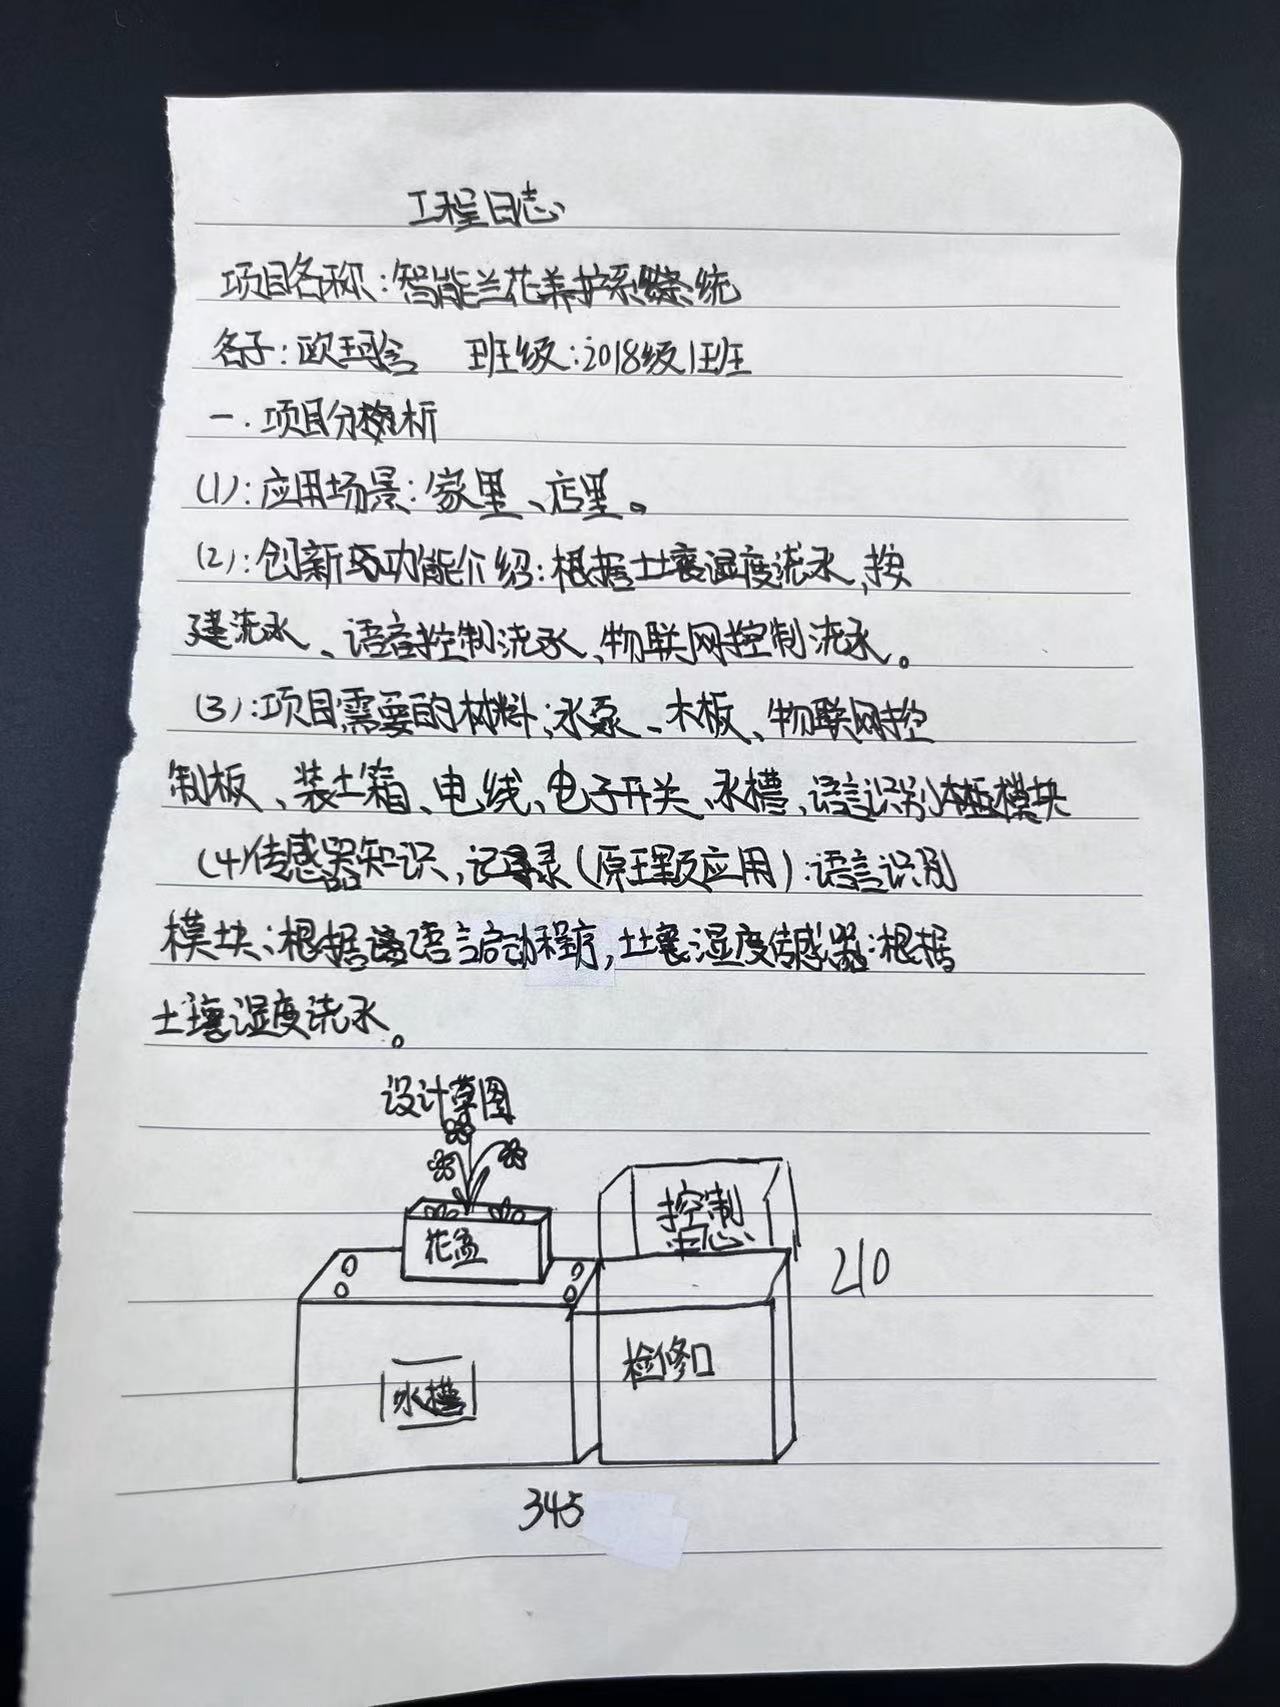 工程日志
项目名称:智能兰花养护系统
名子:欧珂含 班级:2018级1班
一.项目分析
(1):应用场景:家里、店里。
(2):创新与功能介绍:根据土壤湿度浇水,按
建浇水、语音控制浇水、物联网控制浇水。
(3):项目需要的材料:水泵、木板、物联网控
制板、装土箱、电线、电子开关、水槽、语言识别模块
(4)传感器知识,记录(原理及应用):语言识别
模块:根据语言启动程序,土壤湿度传感器:根据
土壤湿度浇水。
设计草图
花盆
控制
中心
210
水槽
检修口
345